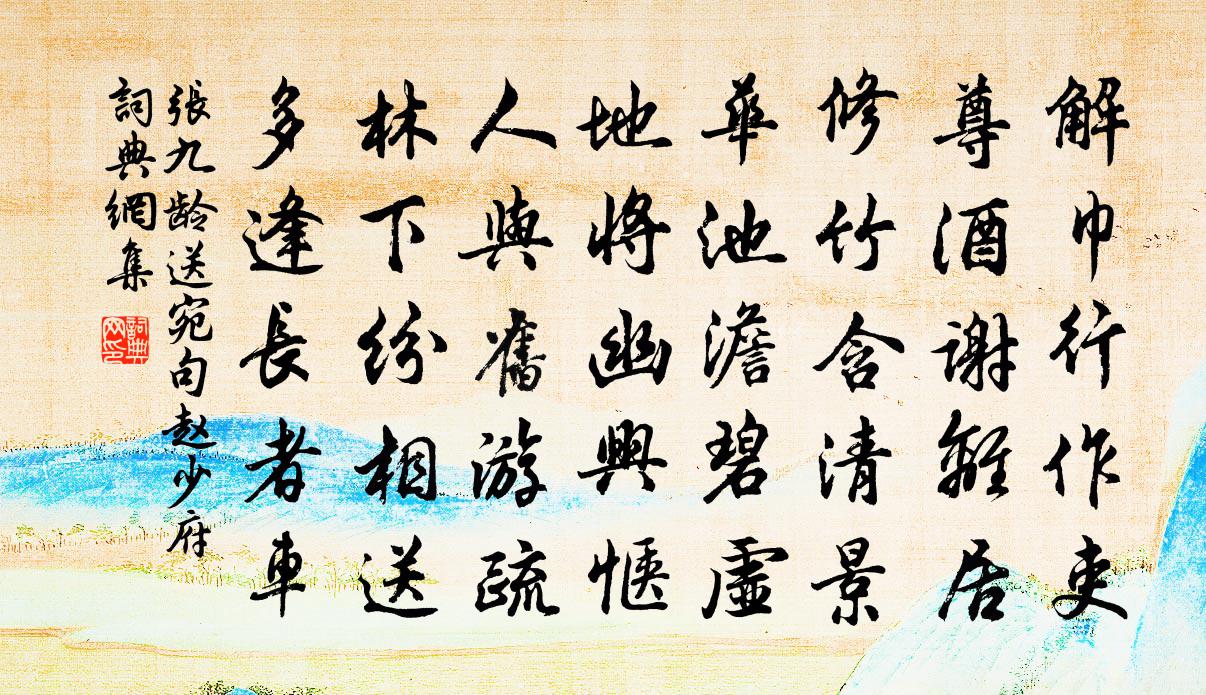 解巾行作吏
尊酒謝離居
修竹含清景
華池澹碧虛
地將幽興愜
人與舊游疏
林下紛相送
多逢長者車
張九齡送宛句赵少府
詞典網集